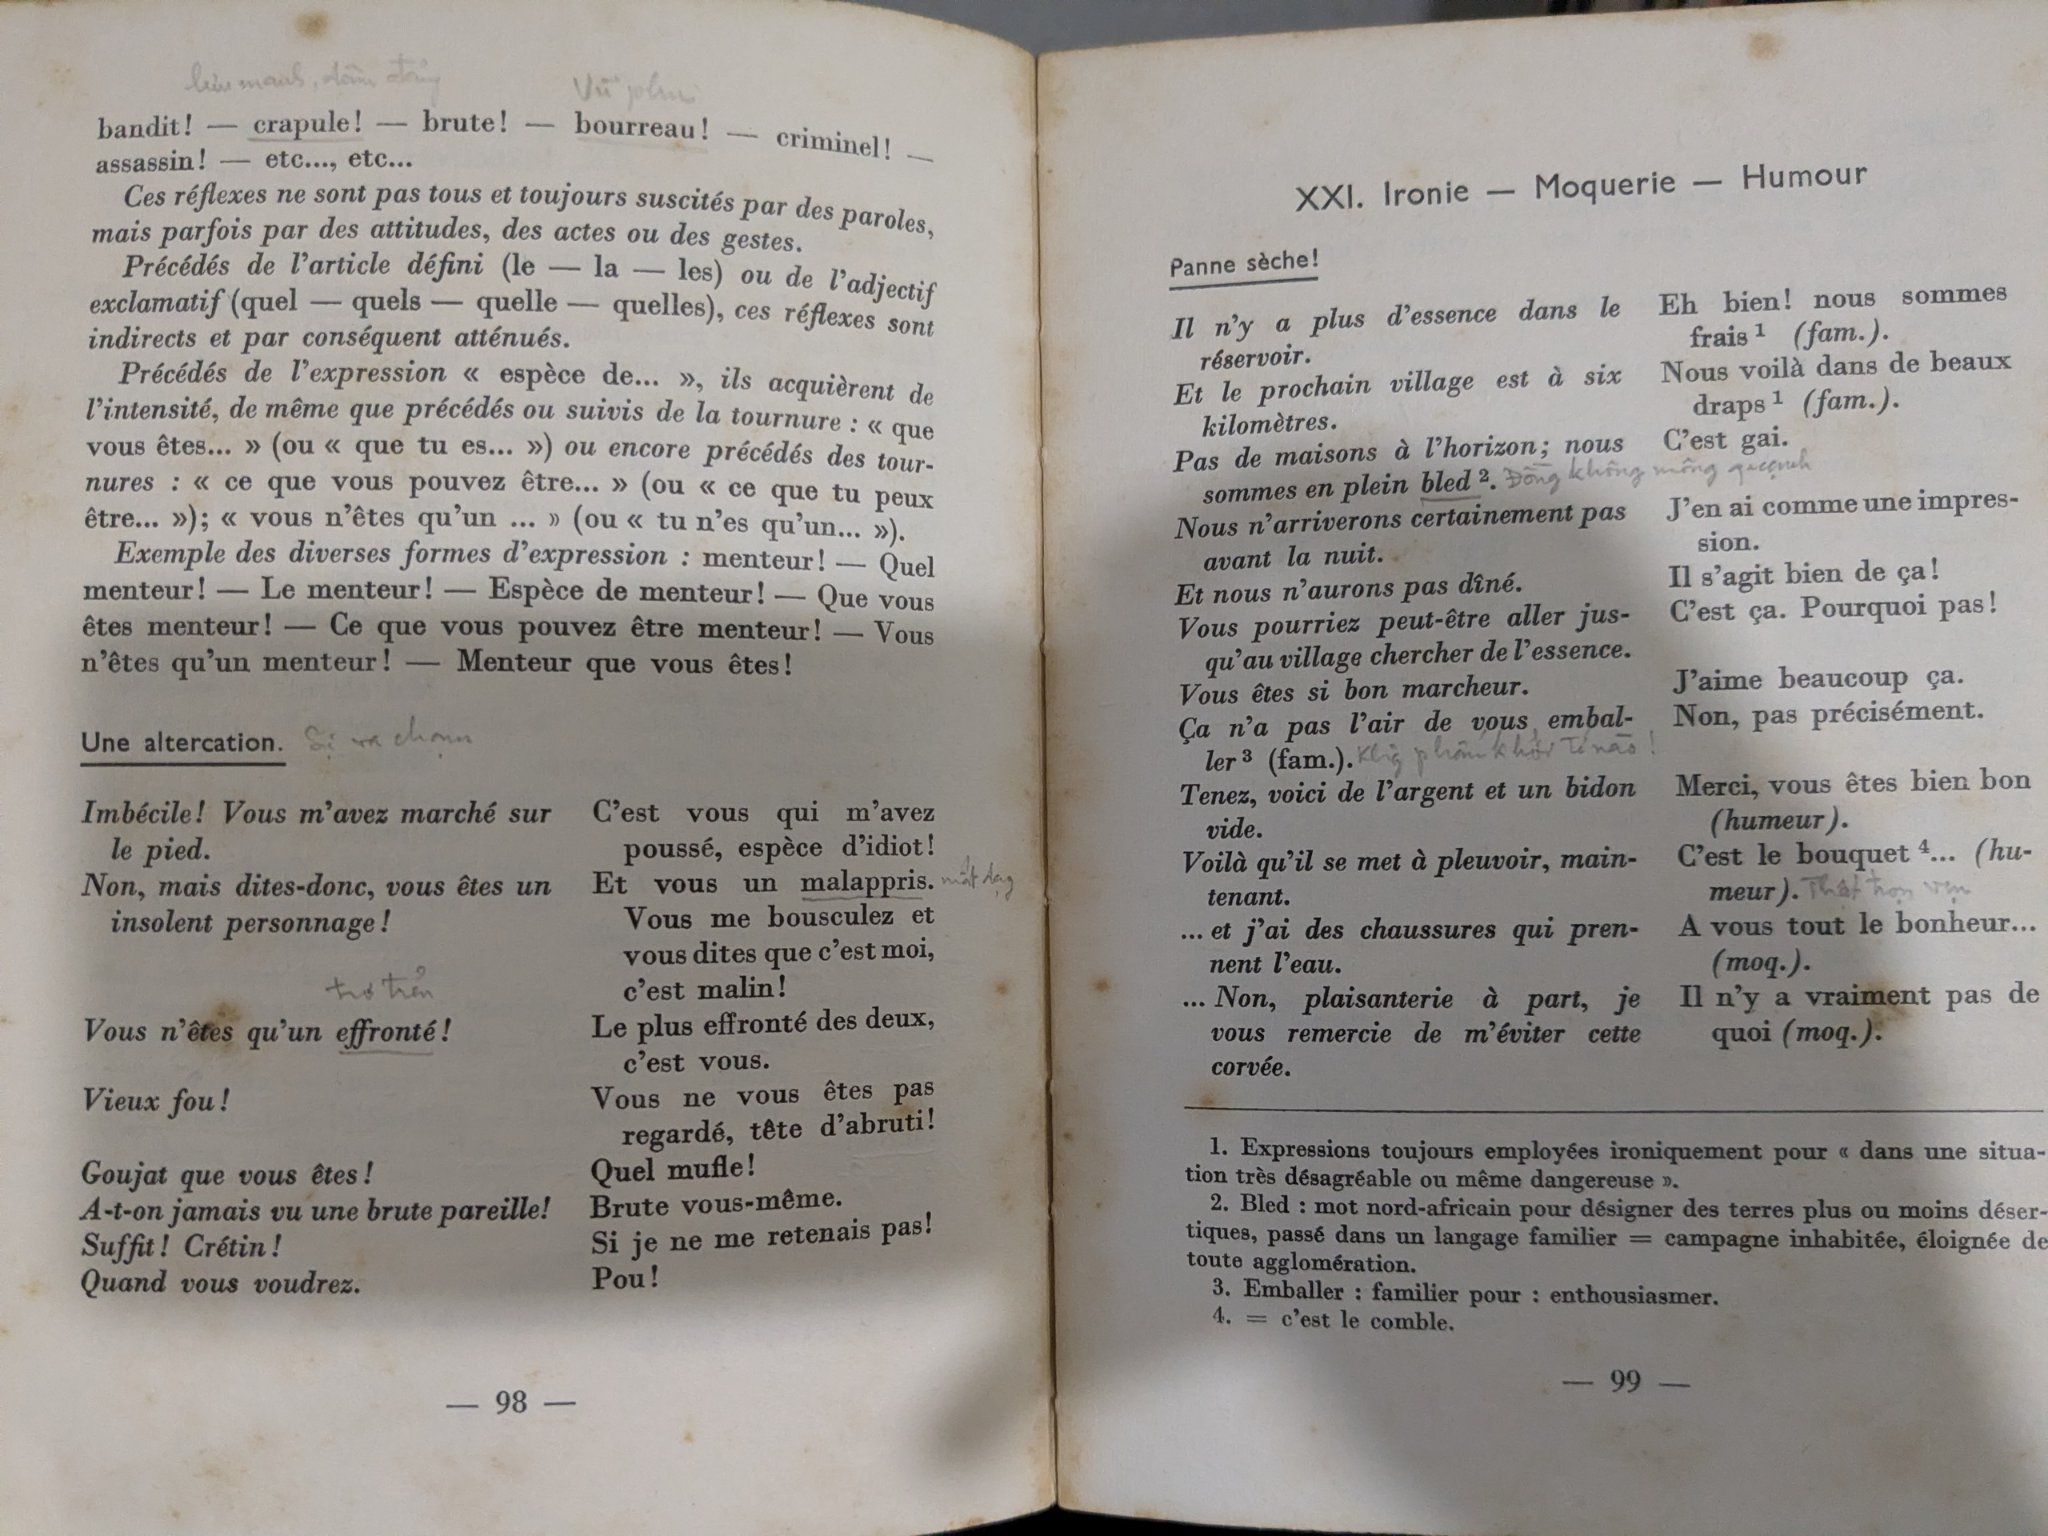 bandit! — crapule! — brute! — bourreau! — criminel! —
assassin! — etc..., etc...
Ces réflexes ne sont pas tous et toujours suscités par des paroles,
mais parfois par des attitudes, des actes ou des gestes.
Précédés de l'article défini (le — la — les) ou de l'adjectif
exclamatif (quel — quels — quelle — quelles), ces réflexes sont
indirects et par conséquent atténués.
Précédés de l'expression « espèce de... », ils acquièrent de
l'intensité, de même que précédés ou suivis de la tournure : « que
vous êtes... » (ou « que tu es... ») ou encore précédés des tour-
nures : « ce que vous pouvez être... » (ou « ce que tu peux
être... »); « vous n'êtes qu'un ... » (ou « tu n'es qu'un... »).
Exemple des diverses formes d'expression : menteur! — Quel
menteur! — Le menteur! — Espèce de menteur! — Que vous
êtes menteur! — Ce que vous pouvez être menteur! — Vous
n'êtes qu'un menteur! — Menteur que vous êtes!
Une altercation.
Imbécile! Vous m'avez marché sur
le pied.
Non, mais dites-donc, vous êtes un
insolent personnage!
trơ trẽn
Vous n'êtes qu'un effronté!
Vieux fou!
Goujat que vous êtes!
A-t-on jamais vu une brute pareille!
Suffit! Crétin!
Quand vous voudrez.
C'est vous qui m'avez
poussé, espèce d'idiot!
Et vous un malappris. mất dạy
Vous me bousculez et
vous dites que c'est moi,
c'est malin!
Le plus effronté des deux,
c'est vous.
Vous ne vous êtes pas
regardé, tête d'abruti!
Quel mufle!
Brute vous-même.
Si je ne me retenais pas!
Pou!
— 98 —
XXI. Ironie — Moquerie — Humour
Panne sèche!
Il n'y a plus d'essence dans le
réservoir.
Et le prochain village est à six
kilomètres.
Pas de maisons à l'horizon; nous
sommes en plein bled 2. Đồng không mông quạnh
Nous n'arriverons certainement pas
avant la nuit.
Et nous n'aurons pas dîné.
Vous pourriez peut-être aller jus-
qu'au village chercher de l'essence.
Vous êtes si bon marcheur.
Ça n'a pas l'air de vous embal-
ler 3 (fam.).
Tenez, voici de l'argent et un bidon
vide.
Voilà qu'il se met à pleuvoir, main-
tenant.
... et j'ai des chaussures qui pren-
nent l'eau.
... Non, plaisanterie à part, je
vous remercie de m'éviter cette
corvée.
Eh bien! nous sommes
frais 1 (fam.).
Nous voilà dans de beaux
draps 1 (fam.).
C'est gai.
J'en ai comme une impres-
sion.
Il s'agit bien de ça!
C'est ça. Pourquoi pas!
J'aime beaucoup ça.
Non, pas précisément.
Merci, vous êtes bien bon
(humeur).
C'est le bouquet 4... (hu-
meur). Thật trọn vẹn
A vous tout le bonheur...
(moq.).
Il n'y a vraiment pas de
quoi (moq.).
1. Expressions toujours employées ironiquement pour « dans une situa-
tion très désagréable ou même dangereuse ».
2. Bled : mot nord-africain pour désigner des terres plus ou moins déser-
tiques, passé dans un langage familier = campagne inhabitée, éloignée de
toute agglomération.
3. Emballer : familier pour : enthousiasmer.
4. = c'est le comble.
— 99 —